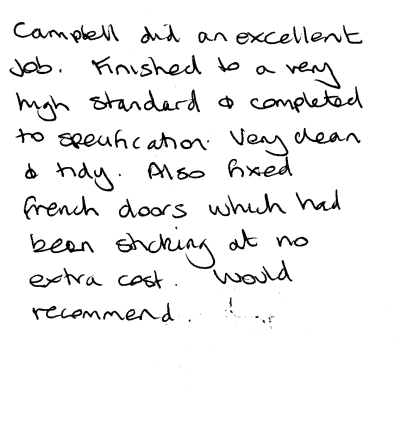 Campbell did an excellent
job. Finished to a very
high standard & completed
to specification. Very clean
& tidy. Also fixed
french doors which had
been sticking at no
extra cost. Would
recommend.